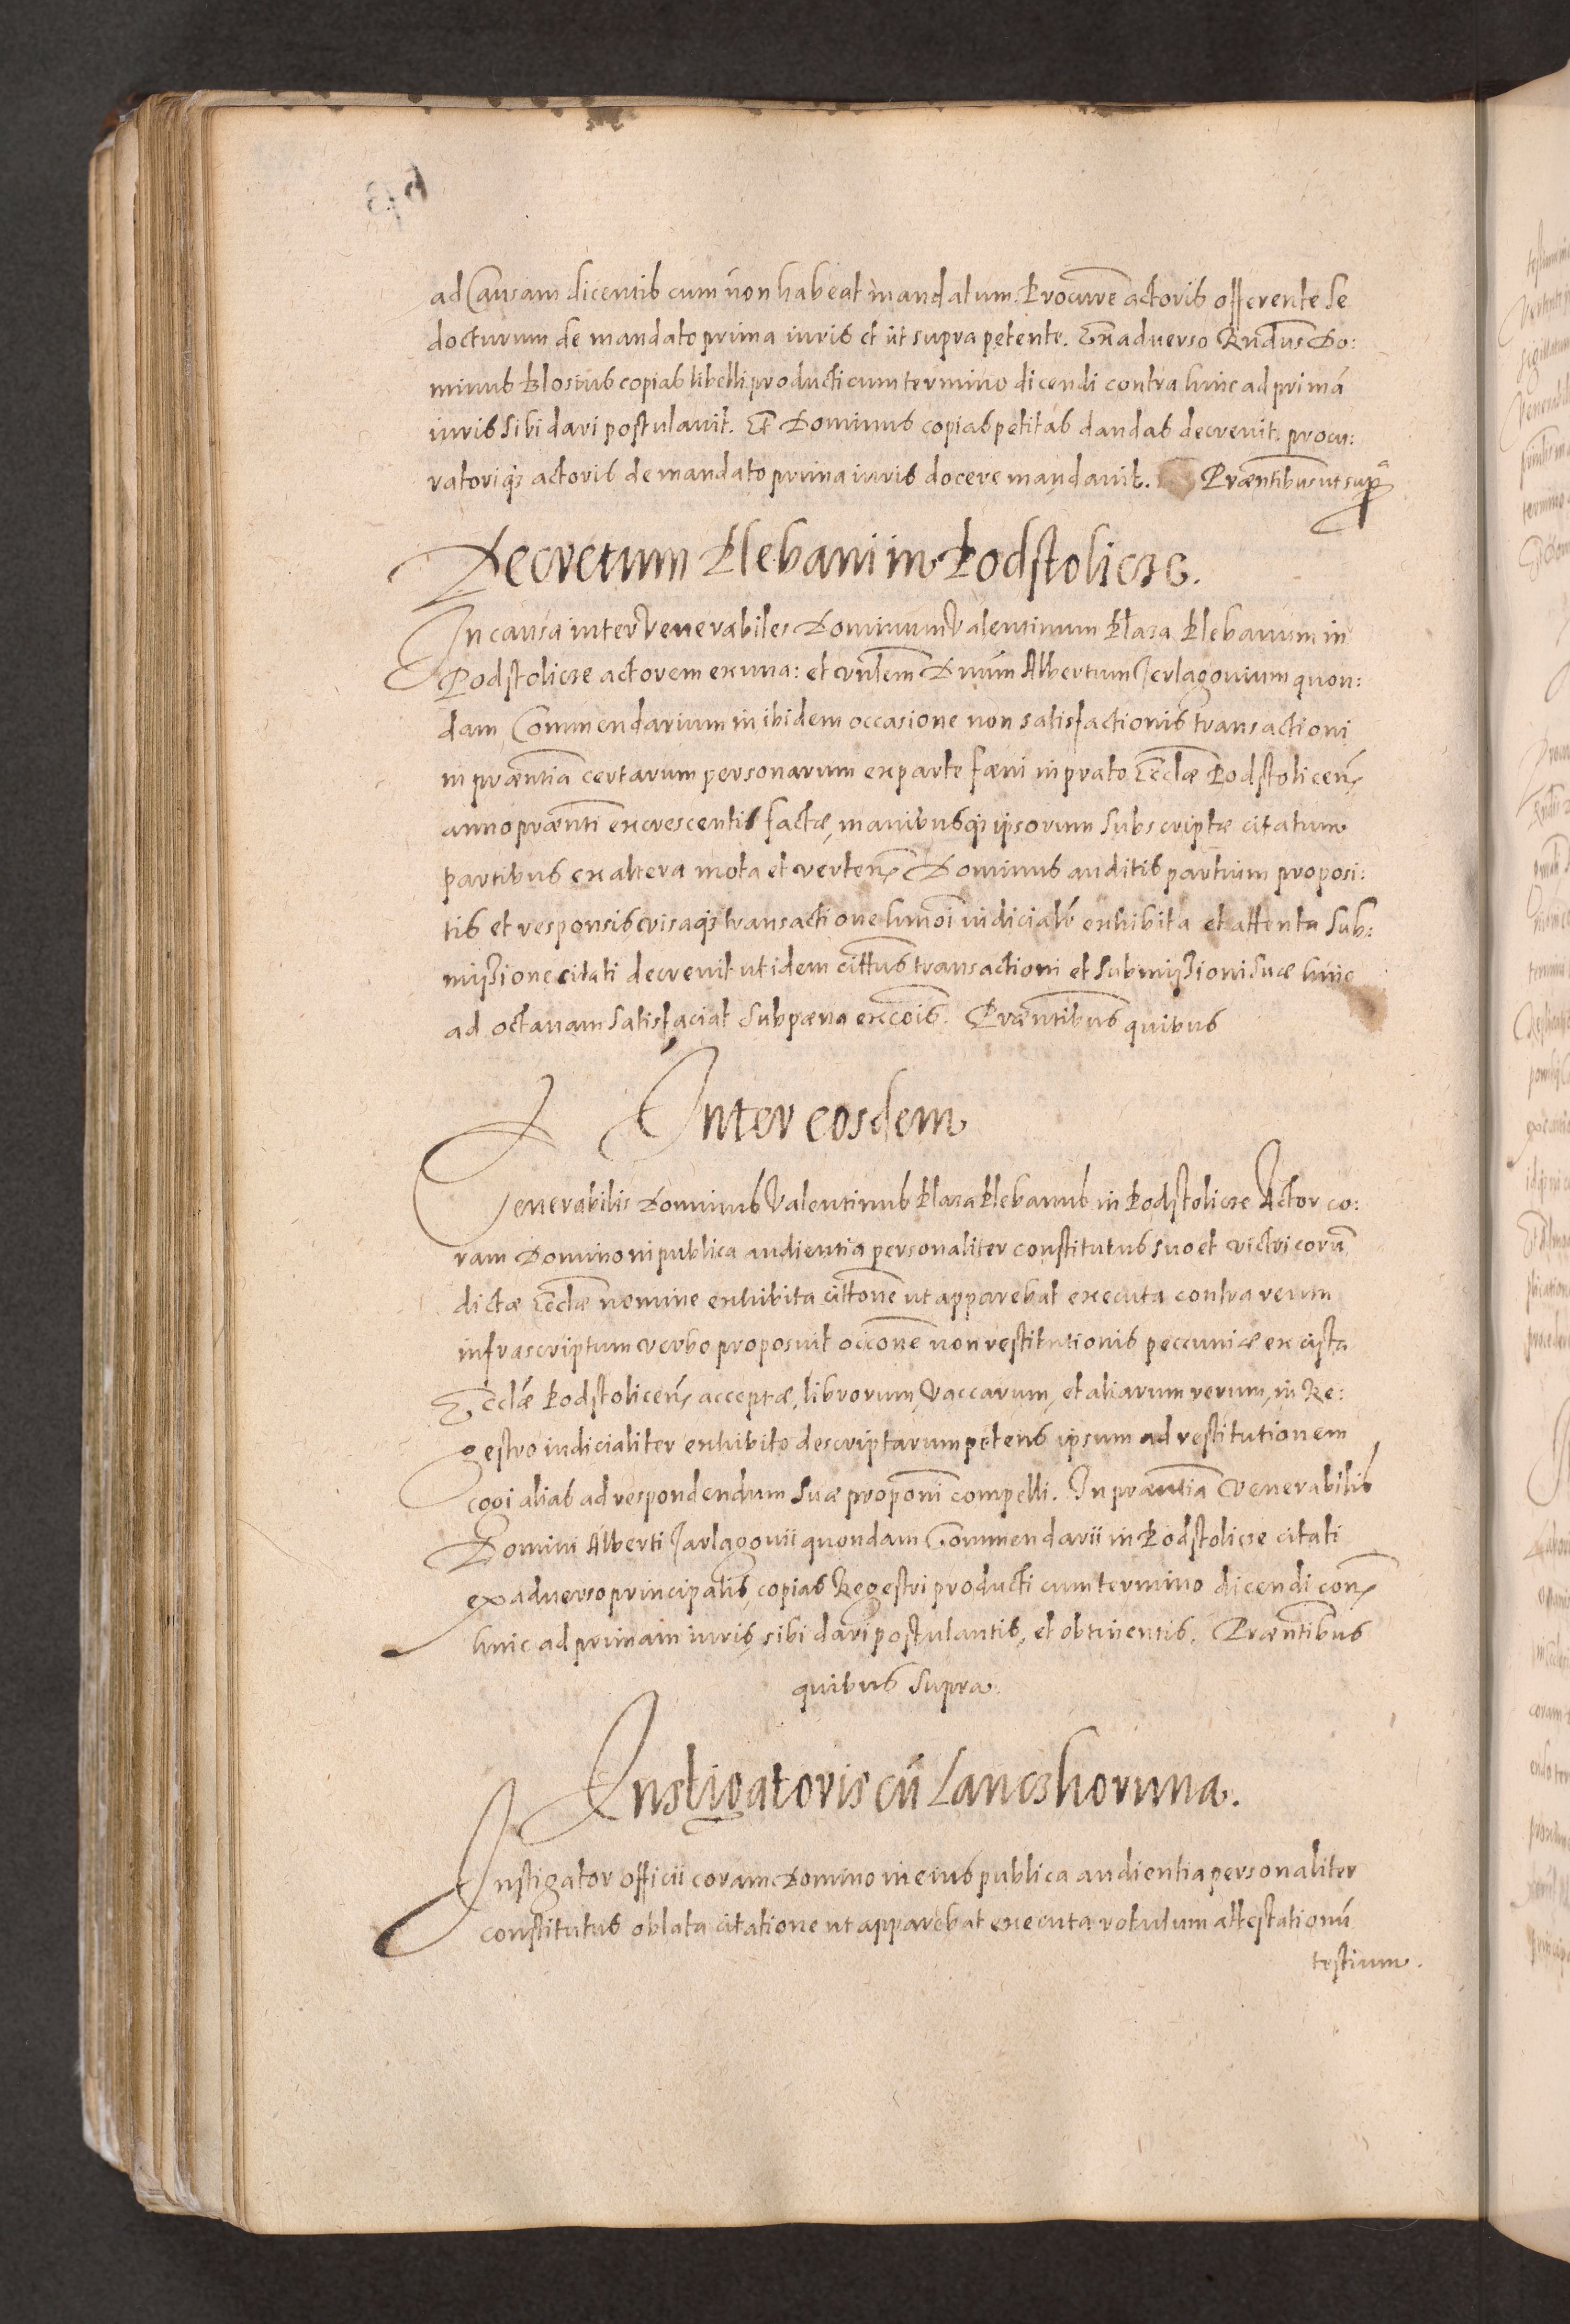 ad Causam dicentis cum non habeat mandatum. Procure actoris offerente se
docturum de mandato prima iuris et ut supra petente. Ex adverso Rndus Do:
minus Plosius copias libelli producti cum termino dicendi contra hinc ad primã
iuris sibi dari postulavit. Et Dominus copias petitas dandas decrevit. procu:
ratoriq3 actoris de mandato prima iuris docere mandavit. Præntibus ut supra
Decretum Plebani in Podstolicze.
In causa inter Venerabiles Dominum Valentinum Płaza Plebanum in
Podstolicze actorem ex una: et vnlem Dnum Albertum Jerlagonium quon:
dam Commendarium in ibidem occasione non satisfactionis transactioni
in præntia certarum personarum ex parte fæni in prato Ecclæ Podstolicen
anno prænti excrescentis factæ, manibusq3 ipsorum subscriptæ citatum
partibus ex altera mota et verten Dominus auditis partium proposi:
tis et responsis, visaq3 transactione hmoi iudicialr exhibita et attenta sub:
missione citati decrevit ut idem cittus transactioni et submissioni suæ hinc
ad octavam satisfaciat sub pæna excois. Præntibus quibus
Inter eosdem
Venerabilis Dominus Valentinus Płaza Plebanus in Podstolicze Actor co:
ram Domino in publica audientia personaliter constitutus suo et victricorũ
dictæ Ecclæ nomine exhibita cittone ut apparebat executa contra reum
infrascriptum verbo proposuit occone non restitutionis peccuniæ ex cista
Ecclæ Podstolicen acceptæ, librorum, vaccarum, et aliarum rerum, in Re:
gestro iudicialiter exhibito descriptarum petens ipsum ad restitutionem
cogi alias ad respondendum suæ proponi compelli. In præntia Venerabilis
Domini Alberti Jarlagonii quondam Commendarii in Podstolicze citati
ex adverso principalis, copias Regestri producti cum termino dicendi con
hinc ad primam iuris, sibi dari postulantis, et obtinentis. Præntibus
quibus supra.
Instigatoris cũ Lanczkoruna.
Instigator officii coram Domino in eius publica audientia personaliter
constitutus oblata citatione ut apparebat executa rotulum attestationũ
testium.